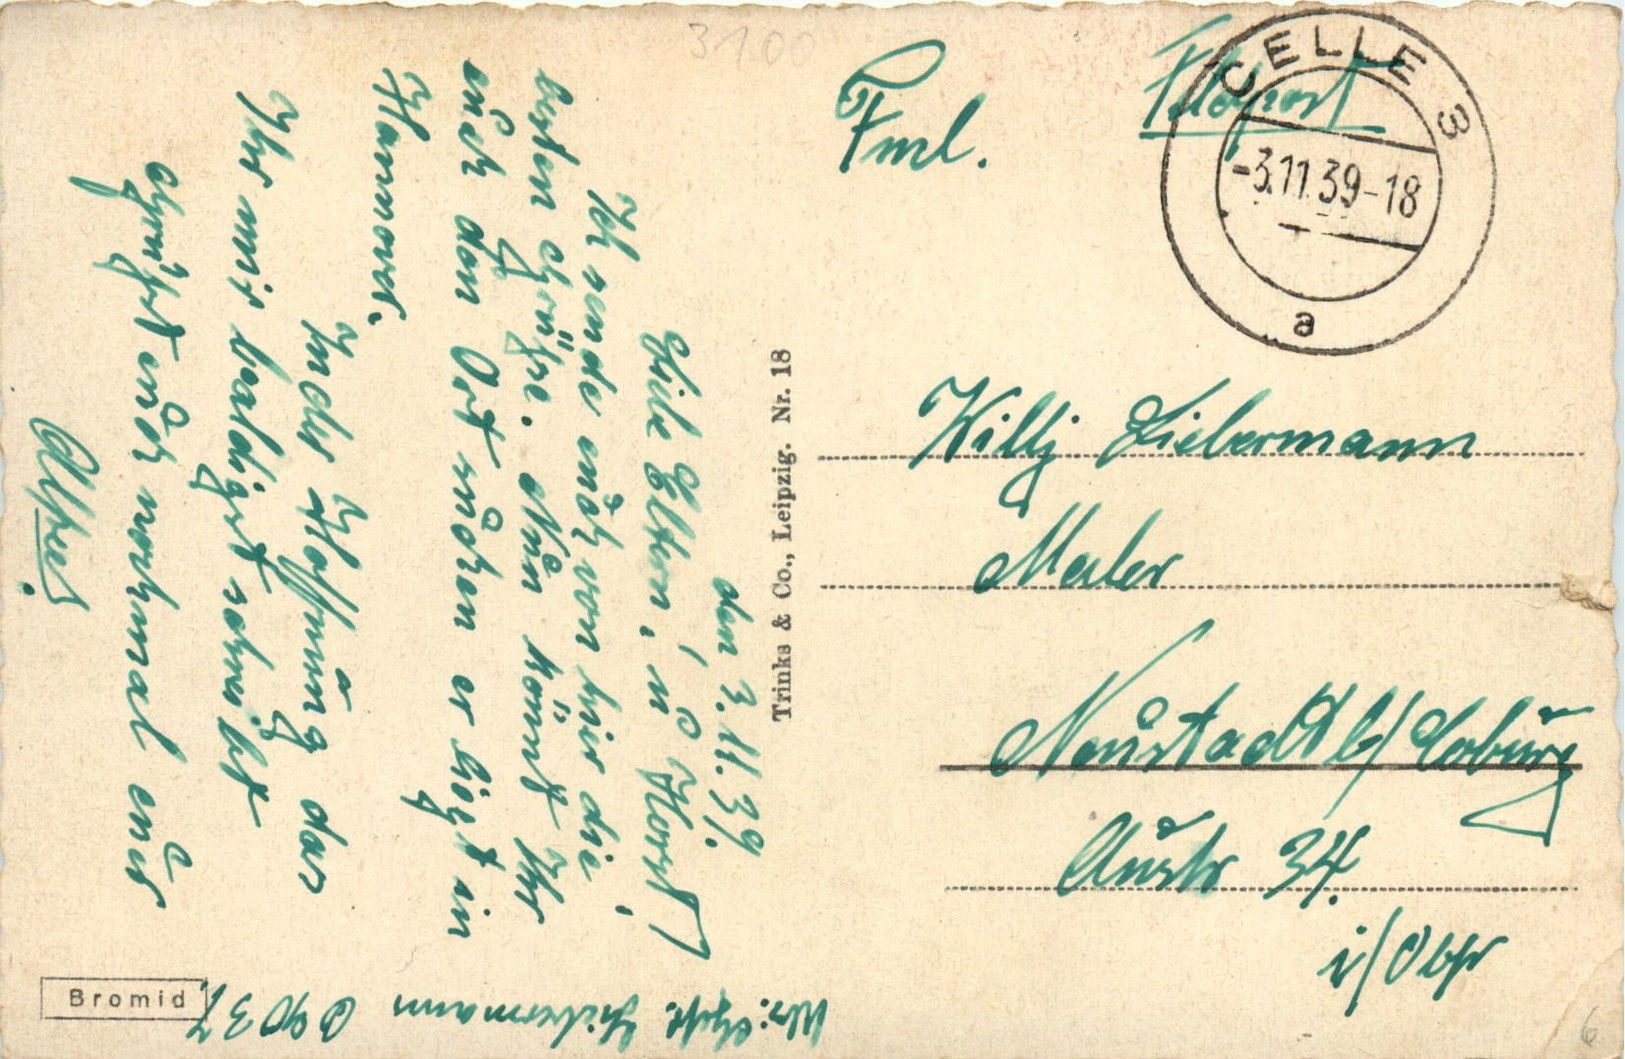 3100
Feldpost
CELLE 3
-3.11.39-18
a
Fml.
Willy Liebermann
Maler
Neustadt b/Coburg
Austr 34.
i/Obfr
Trinks & Co., Leipzig. Nr. 18
den 3.11.39.
Liebe Eltern, u Horst!
Ich sende euch von hir die
besten Grüße. Nun könnt Ihr
euch den Ort suchen er ligt in
Hannover.
In der Hoffnung das
Ihr mir baldigst schreibt
grüßt euch nochmal eus
Alfred.
Gefr. Liebermann
Bromid
6